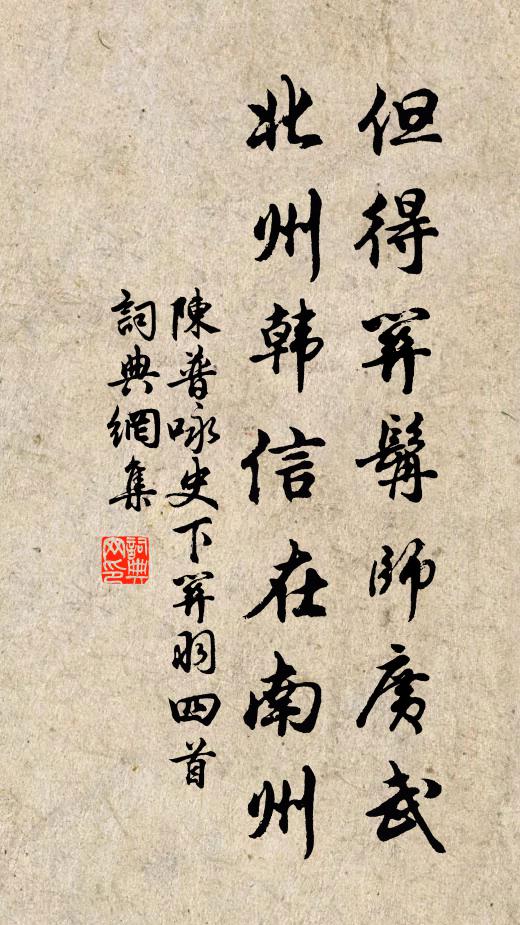 但得關髯師廣武
北州韓信在南州
陳普咏史下關羽四首
詞典網集
詞典
网印